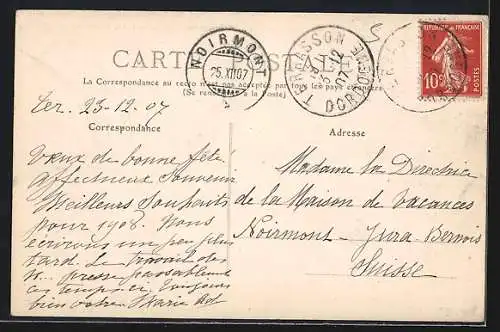 CARTE POSTALE
NOIRMONT
25.XII07
TERRASSON
DORDOGNE
12
07
REPUBLIQUE FRANÇAISE
10c
POSTES
La Correspondance au recto n'est pas acceptée par tous les pays étrangers
(Se renseigner à la Poste)
Ter. 23-12-07
Correspondance
Adresse
Vœux de bonne fête
affectueux souvenir
Meilleurs souhaits
pour 1908. Nous
écrirons un peu plus
tard. Le travail des
presse passablement
ces temps-ci. Toujours
bien votre Marie
Madame la Directrice
de la Maison de Vacances
Noirmont - Jura-Bernois
Suisse